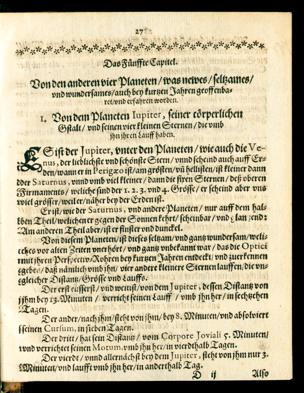 27
Das Fünffte Capitel.
Von den andern vier Planeten / was newes / seltzames /
vnd wundersames / auch bey kurtzen Jahren geoffenba-
ret / vnd erfahren worden.
1. Von dem Planeten Iupiter, seiner cörperlichen
Gstalt / vnd seinen vier kleinen Sternen / die vmb
jhn jhren Lauff haben.
ES ist der Jupiter, vnter den Planeten / wie auch die Ve-
nus, der lieblichste vnd schönste Stern / vnnd scheind auch auff Er-
den / wann er in Perigæo ist / am grösten / vnd hellisten / ist kleiner dann
der Saturnus, vnnd vmb viel kleiner / dann die fixen Sternen / deß oberen
Firmaments / welche sind der 1. 2. 3. vnd 4. Grösse / er scheind aber vns
viel grösser / weil er / näher bey der Erden ist.
Er ist / wie der Saturnus, vnd andere Planeten / nur auff dem hal-
ben Theil / welcher er gegen der Sonnen kehrt / scheinbar / vnd
Am anderen Theil aber / ist er finster vnd dunckel.
Von diesem Planeten / ist dieses seltzam / vnd gantz wundersam / weli-
ches vor alten Zeiten vnerhört / vnd gantz vnbekannt war / das die Optici
mit jhren Perspectiv-Rohren bey kurtzen Jahren entdeckt / vnd zuerkennen
/ daß nämlich vmb jhn / vier andere kleiner Sternen lauffen / die vn-
gleicher Distantz / Grösse vnd Lauffs.
Der erst ist / vnd wenist / von dem Jupiter, dessen Distantz von
jhm bey 13. Minuten / verricht seinen Lauff / vmb jhn her / in sechzehen
Tagen.
Der ander / nach jhm / steht von jhm / bey 8. Minuten / vnd absolviert
seinen Cursum, in sieben Tagen.
Der dritt / hat sein Distantz / vom Corpore Joviali 5. Minuten /
vnd verrichtet seinen Motum, vmb jhn her / in vierdthalb Tagen.
Der vierdt / vnnd allernächst bey dem Jupiter, steht von jhm nur 3.
Minuten / vnd laufft vmb jhn her / in anderthalb Tag.
D ij Also